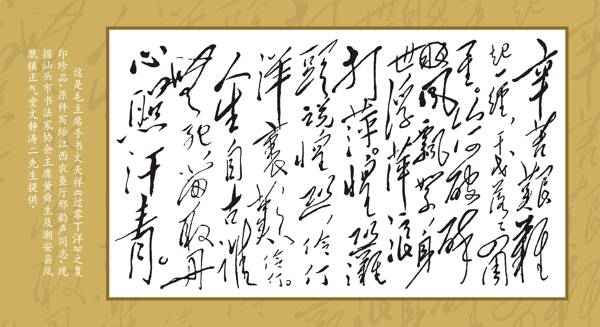 辛苦艰难
起一经，干戈落落四周
星。山河破碎
风飘絮，身
世浮萍浪
打萍。惶恐滩
头说惶恐，伶仃
洋里叹伶仃。
人生自古谁
无死，留取丹
心照汗青。
这是毛主席手书文天祥《过零丁洋》之复
印珍品，原件写给江西农垦厅邢韵声同志，现
据汕头市书法家协会主席黄舜生及潮安县凤
凰镇正气堂文静涛二先生提供。